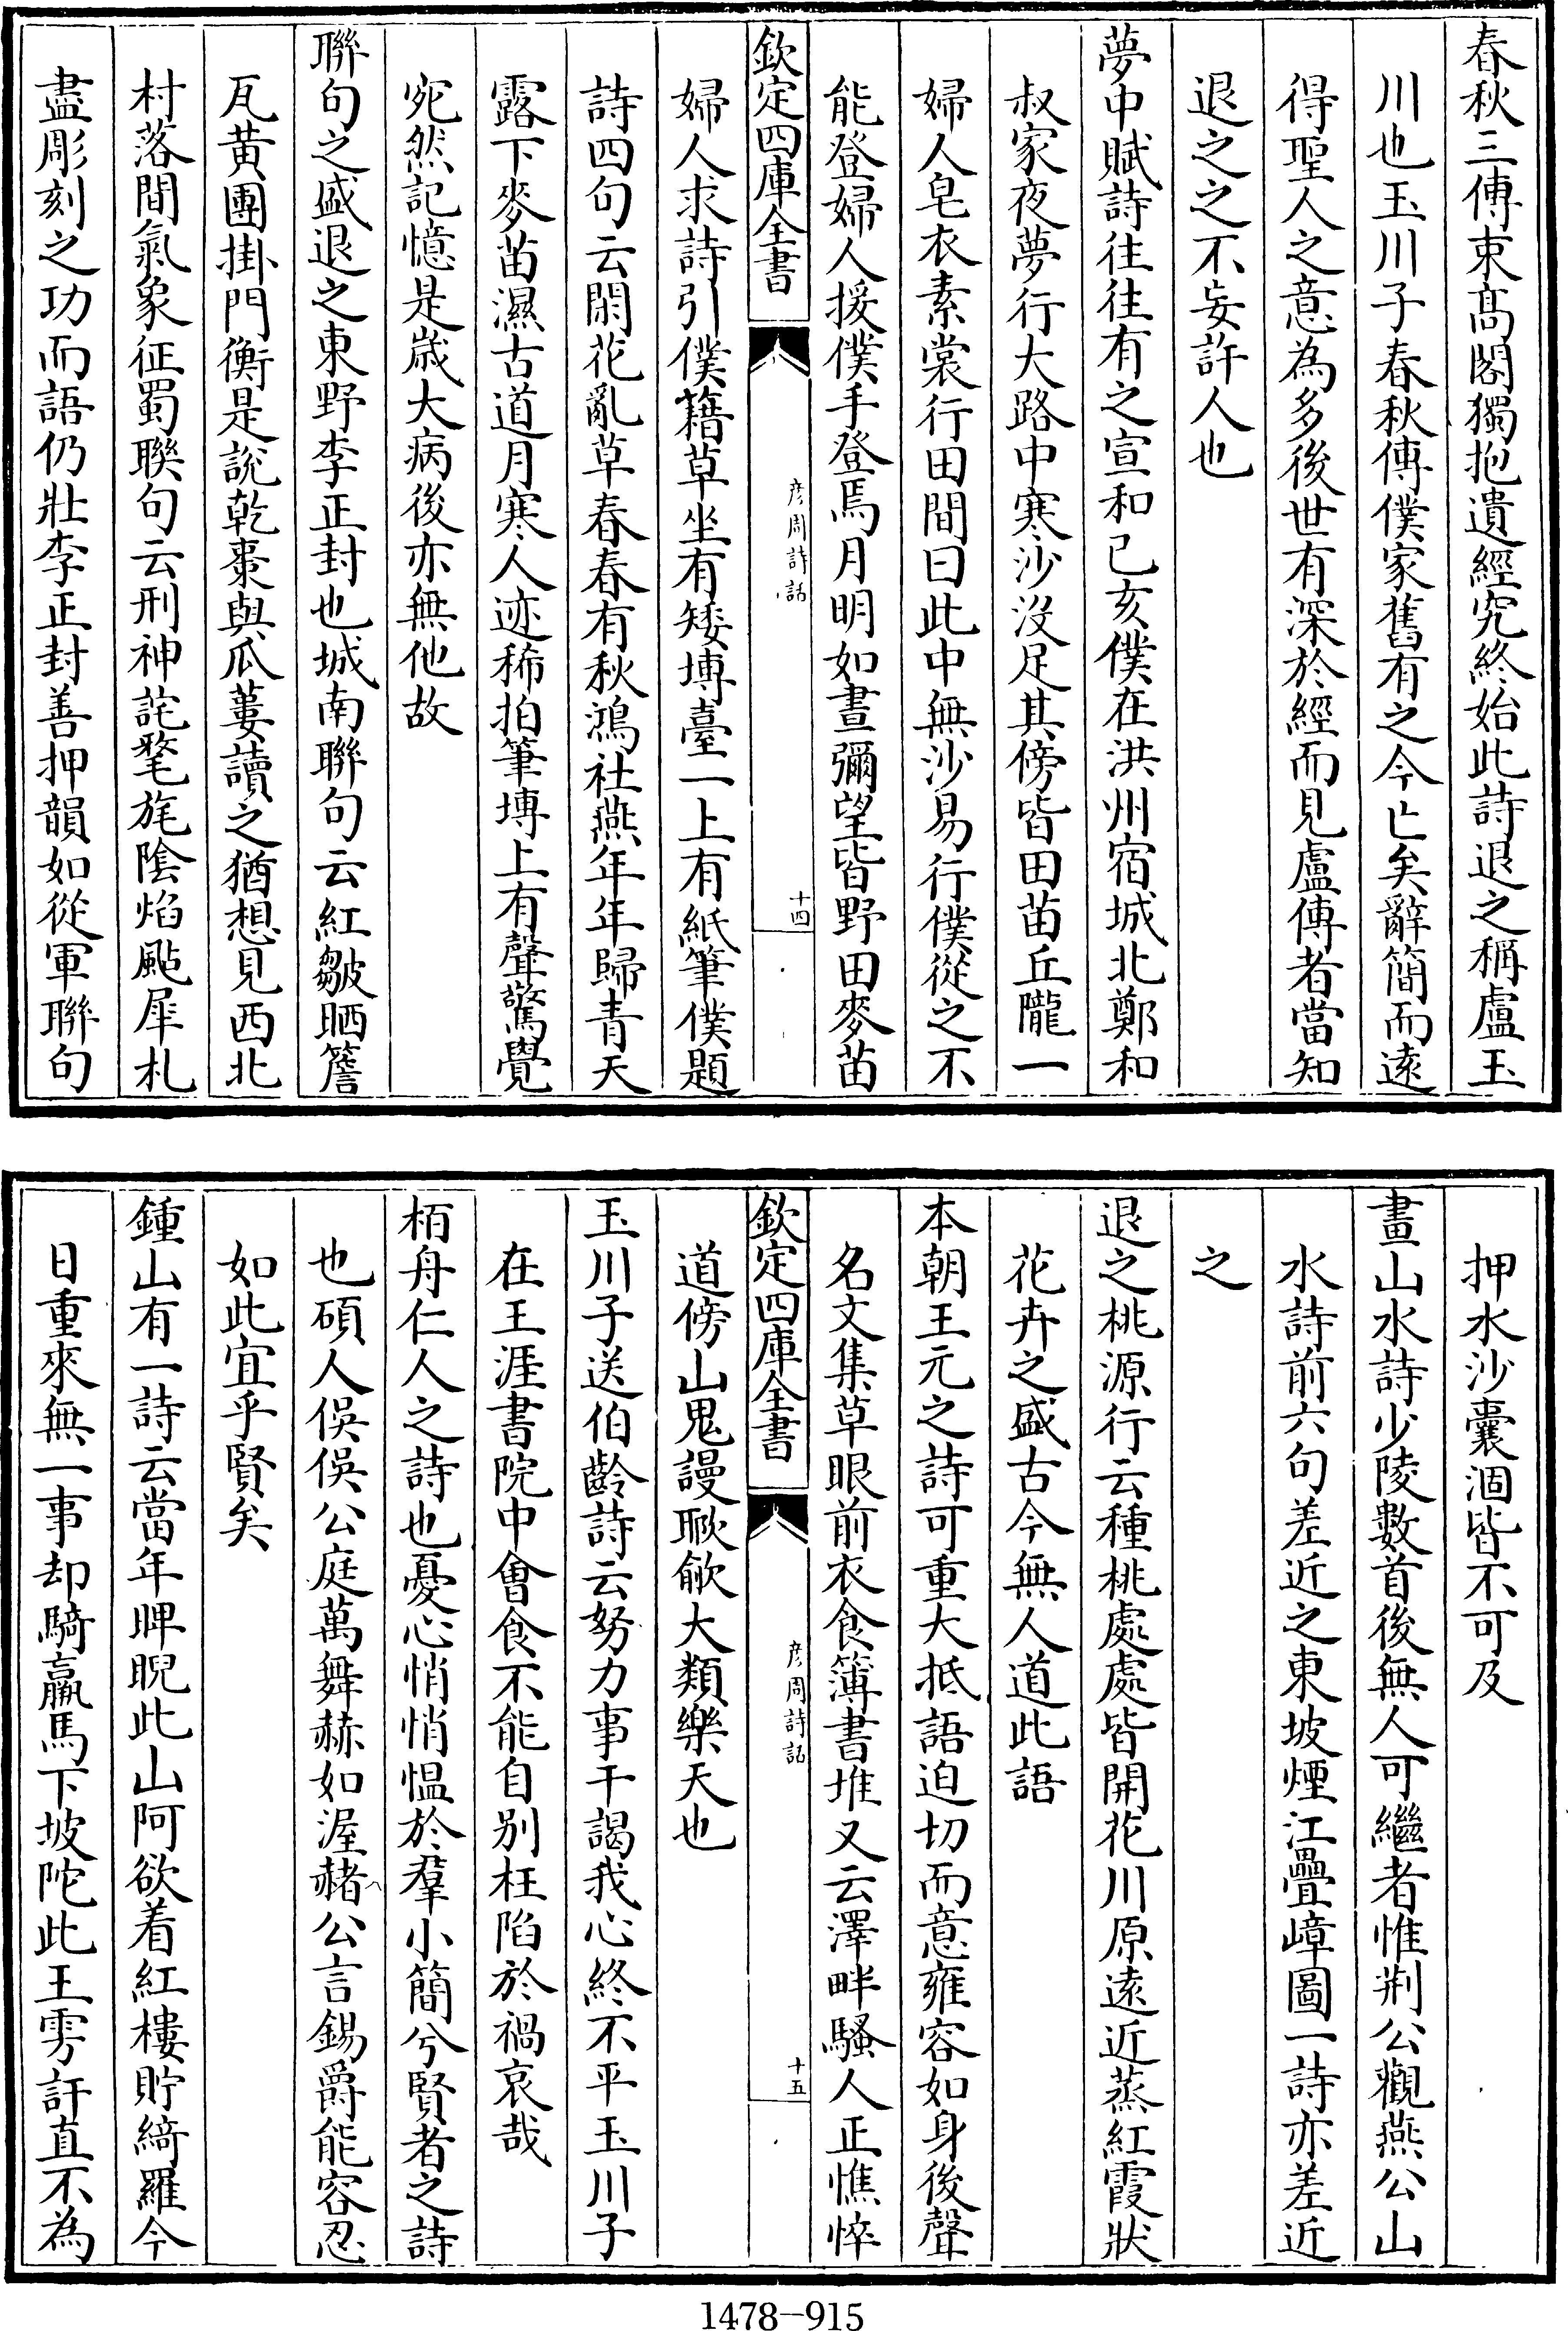 春秋三傳束髙閣獨抱遺經究終始此詩退之稱盧玉
川也玉川子春秋傳僕家舊有之今亡矣辭簡而逺
得聖人之意為多後世有深於經而見盧傳者當知
退之之不妄許人也
夢中賦詩往往有之宣和己亥僕在洪州宿城北鄭和
叔家夜夢行大路中寒沙沒足其傍皆田苗丘隴一
婦人皂衣素裳行田間曰此中無沙易行僕從之不
能登婦人援僕手登焉月明如晝彌望皆野田麥苗
欽定四庫全書
彦周詩話
十四
婦人求詩引僕籍草坐有矮塼臺一上有紙筆僕題
詩四句云閑花亂草春春有秋鴻社燕年年歸青天
露下麥苗濕古道月寒人迹稀拍筆塼上有聲驚覺
宛然記憶是嵗大病後亦無他故
聨句之盛退之東野李正封也城南聨句云紅皺晒簷
瓦黄團掛門衡是說乾棗與瓜蔞讀之猶想見西北
村落間氣象征蜀聨句云刑神詫氂旄陰焰颭犀札
盡彫刻之功而語仍壯李正封善押韻如從軍聨句
押水沙囊涸皆不可及
畫山水詩少陵數首後無人可繼者惟荆公觀燕公山
水詩前六句差近之東坡煙江疊嶂圖一詩亦差近
之
退之桃源行云種桃處處皆開花川原逺近蒸紅霞狀
花卉之盛古今無人道此語
本朝王元之詩可重大抵語迫切而意雍容如身後聲
名文集草眼前衣食簿書堆又云澤畔騷人正憔悴
欽定四庫全書
彦周詩話
十五
道傍山鬼謾揶揄大類樂天也
玉川子送伯齡詩云努力事干謁我心終不平玉川子
在王涯書院中會食不能自别枉陷於禍哀哉
栢舟仁人之詩也憂心悄悄愠於羣小簡兮賢者之詩
也碩人俁俁公庭萬舞赫如渥赭公言錫爵能容忍
如此宜乎賢矣
鍾山有一詩云當年睥睨此山阿欲着紅樓貯綺羅今
日重來無一事却騎羸馬下坡陀此王雱訐直不為
1478-915